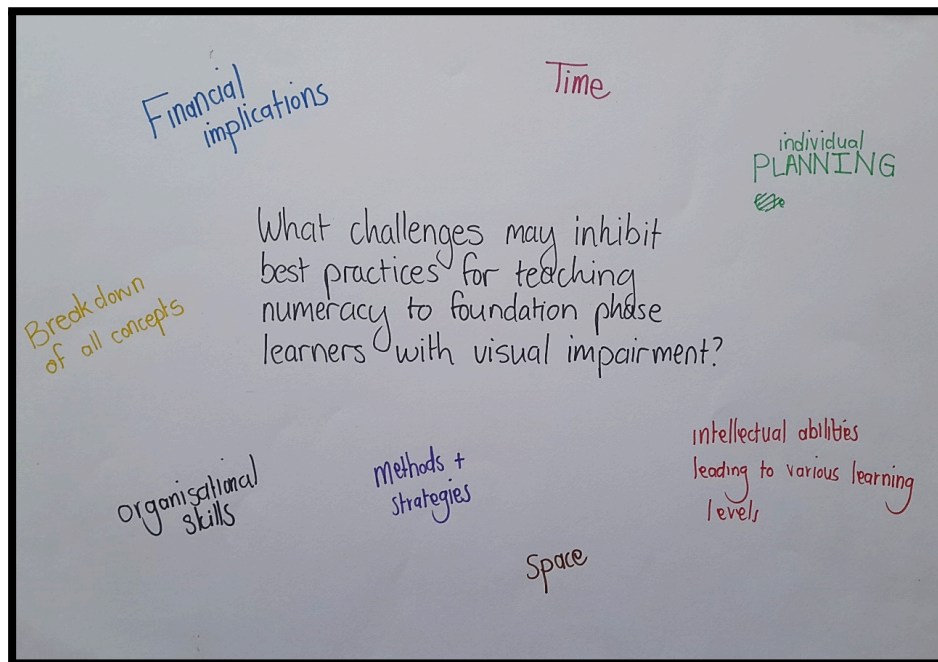 Financial
implications
Time
individual
PLANNING
What challenges may inhibit
best practices for teaching
numeracy to foundation phase
learners with visual impairment?
Breakdown
of all concepts
organisational
skills
methods +
strategies
intellectual abilities
leading to various learning
levels
Space